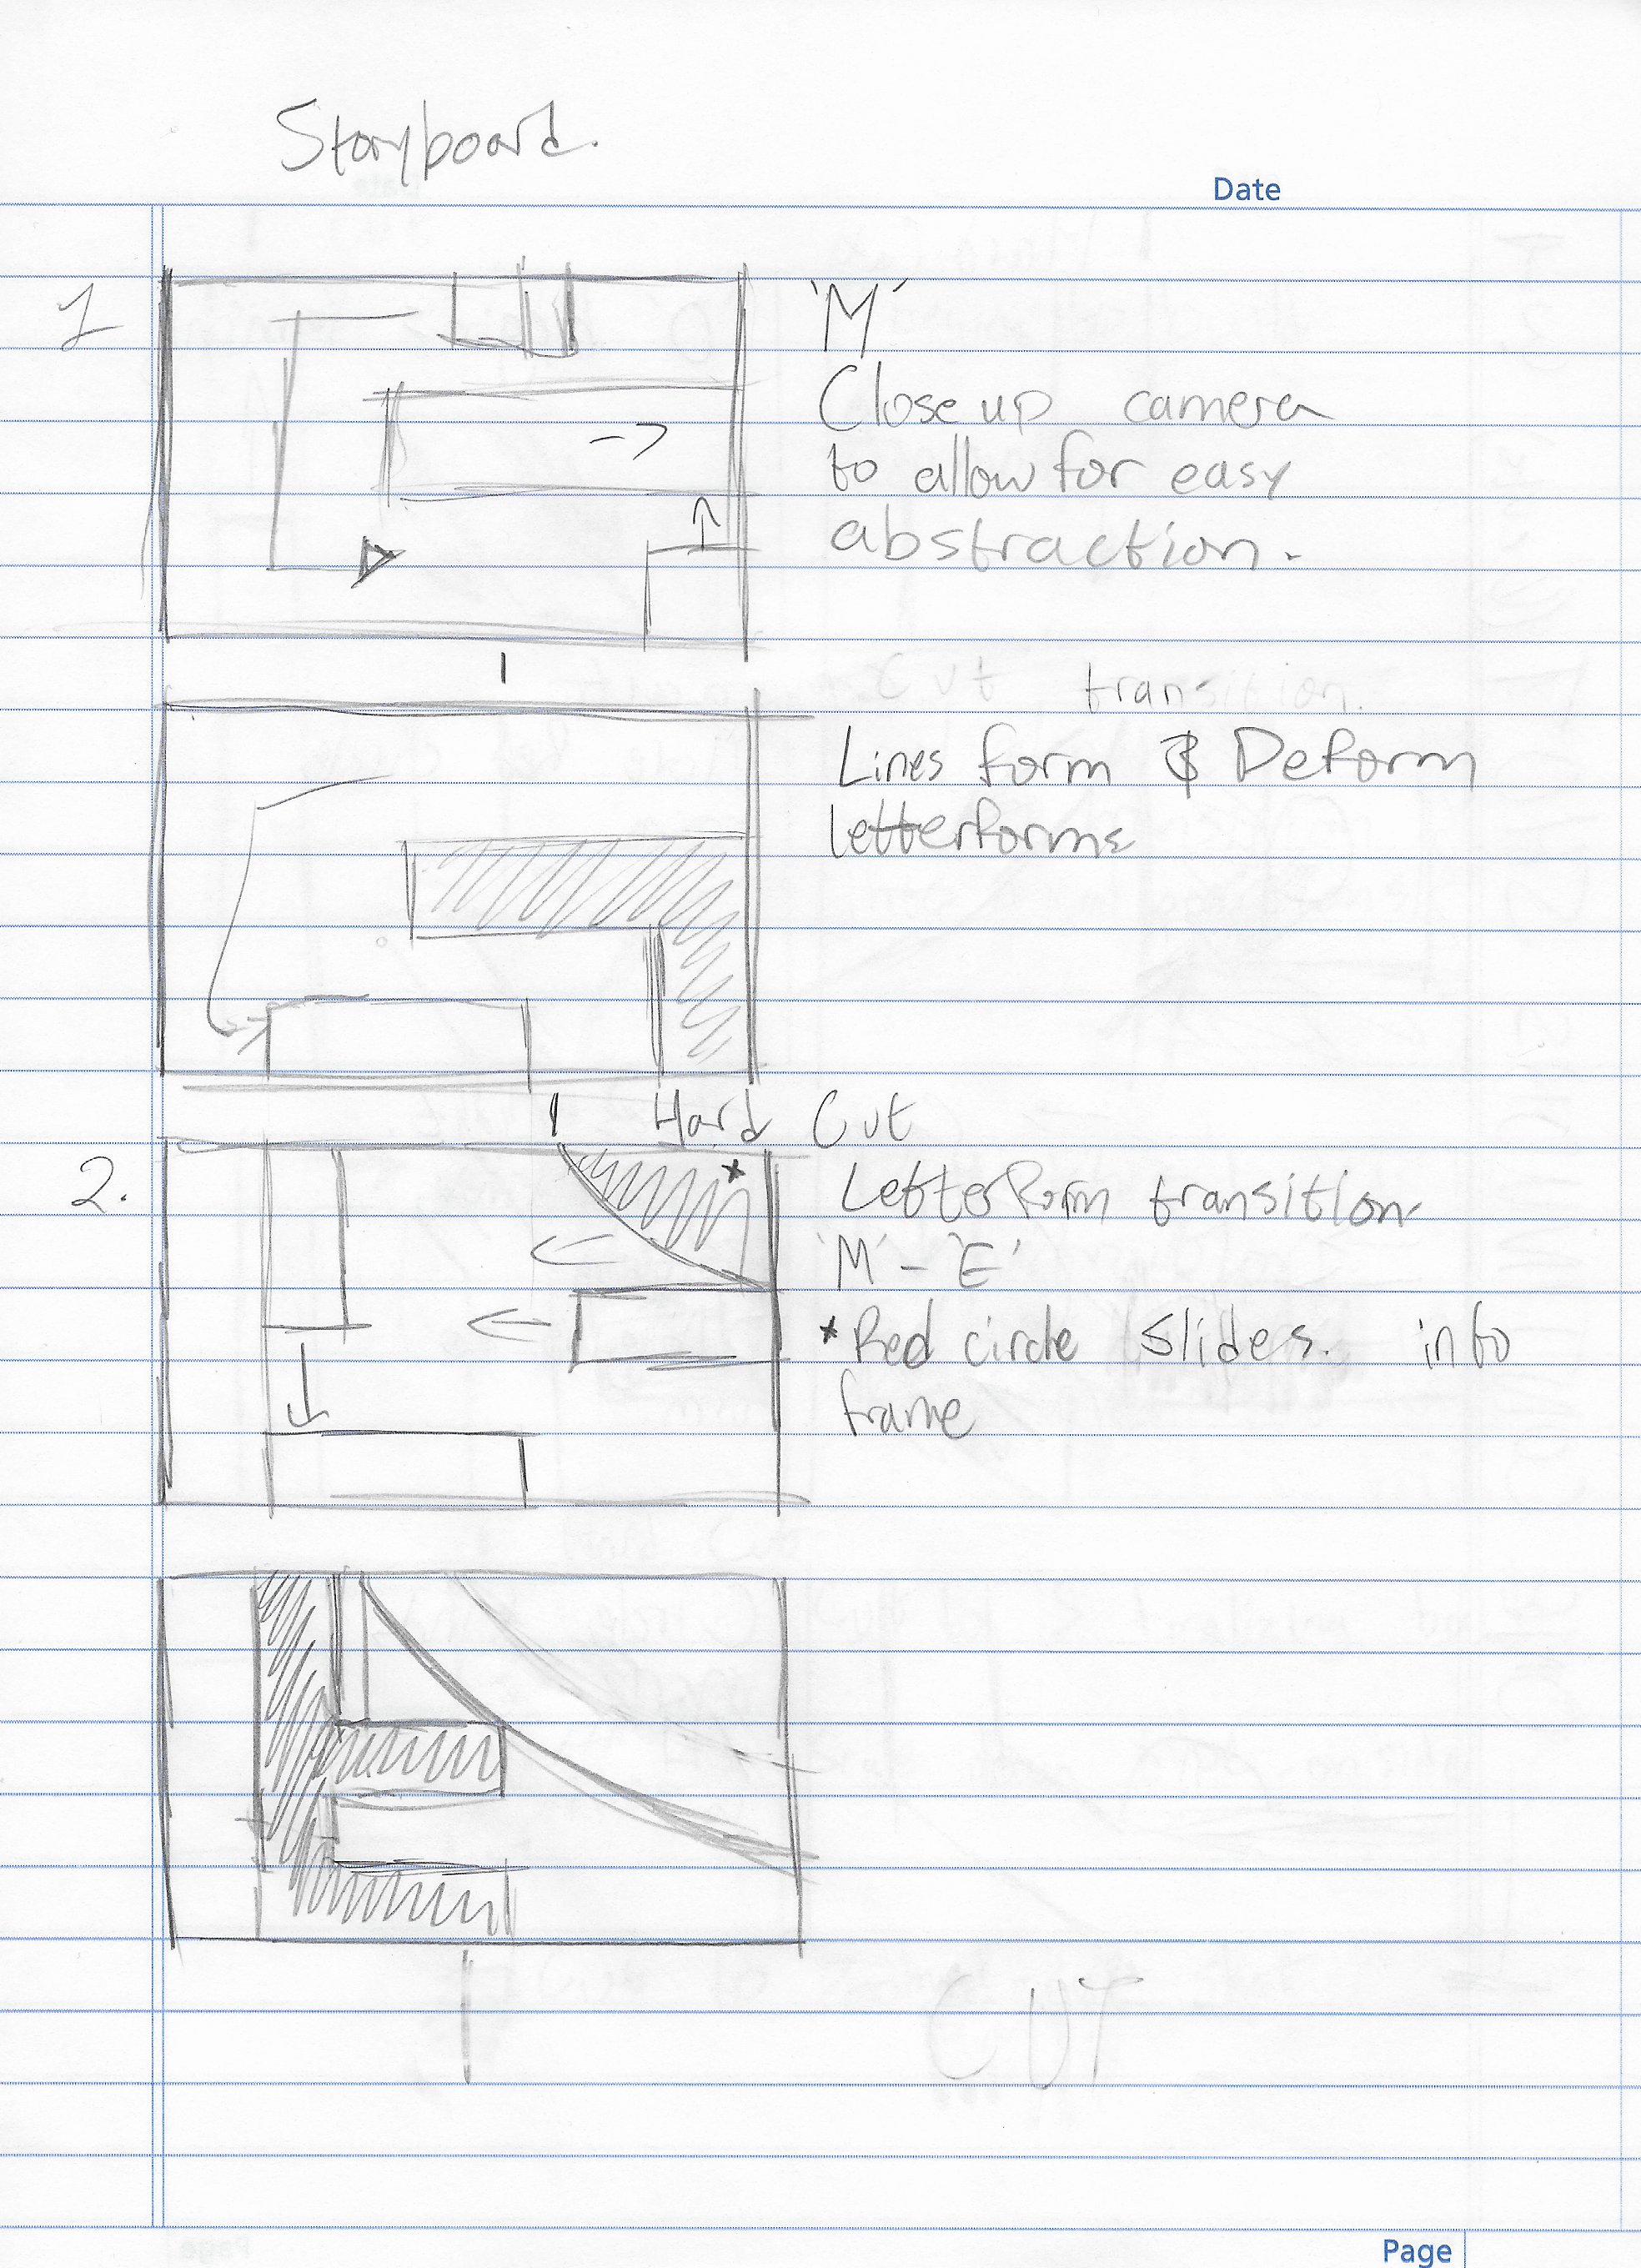 Storyboard.
Date
1
'M'
Close up camera
to allow for easy
abstraction.
Cut transition.
Lines form & Deform
letterforms
Hard Cut
2.
Letterform transition
'M' - 'E'
* Red circle slides. into
frame
CUT
Page